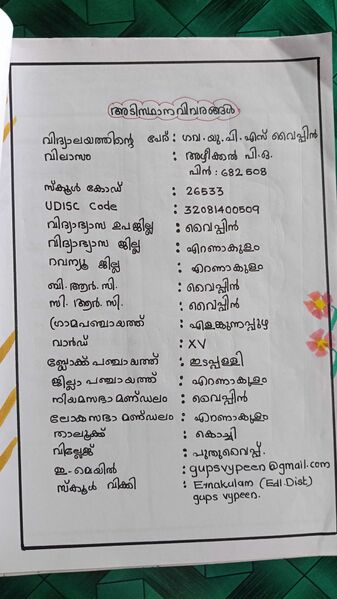 അടിസ്ഥാനവിവരങ്ങൾ
വിദ്യാലയത്തിന്റെ പേര് : ഗവ.യു.പി.എസ് വൈപ്പിൻ
വിലാസം : അഴീക്കൽ പി.ഒ.
പിൻ : 682 508
സ്കൂൾ കോഡ് : 26533
UDISC Code : 32081400509
വിദ്യാഭ്യാസ ഉപജില്ല : വൈപ്പിൻ
വിദ്യാഭ്യാസ ജില്ല : എറണാകുളം
റവന്യൂ ജില്ല : എറണാകുളം
ബി.ആർ.സി. : വൈപ്പിൻ
സി.ആർ.സി. : വൈപ്പിൻ
ഗ്രാമപഞ്ചായത്ത് : എളങ്കുന്നപ്പുഴ
വാർഡ് : XV
ബ്ലോക്ക് പഞ്ചായത്ത് : ഇടപ്പള്ളി
ജില്ലാ പഞ്ചായത്ത് : എറണാകുളം
നിയമസഭാ മണ്ഡലം : വൈപ്പിൻ
ലോകസഭാ മണ്ഡലം : എറണാകുളം
താലൂക്ക് : കൊച്ചി
വില്ലേജ് : പുതുവൈപ്പ്.
ഇ-മെയിൽ : gupsvypeen@gmail.com
സ്കൂൾ വിക്കി : Ernakulam (Edl.Dist)
gups vypeen.